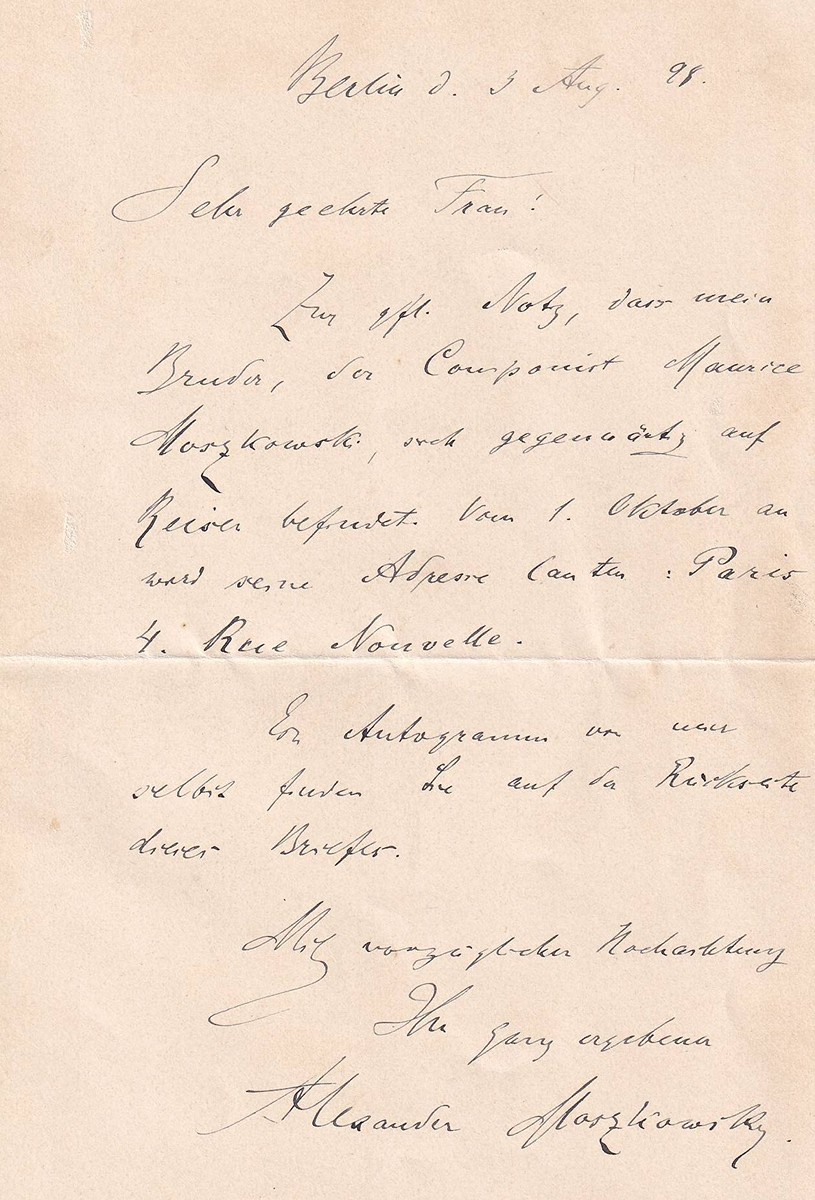 Berlin d. 3 Aug. 98.
Sehr geehrte Frau!
Zur gfl. Notiz, dass mein
Bruder, der Componist Maurice
Moszkowski, sich gegenwärtig auf
Reisen befindet. Vom 1. Oktober an
wird seine Adresse lauten : Paris
4. Rue Nouvelle.
Ein Autogramm von mir
selbst finden Sie auf der Rückseite
dieses Briefes.
Mit vorzüglicher Hochachtung
Ihr ganz ergebener
Alexander Moszkowsky.